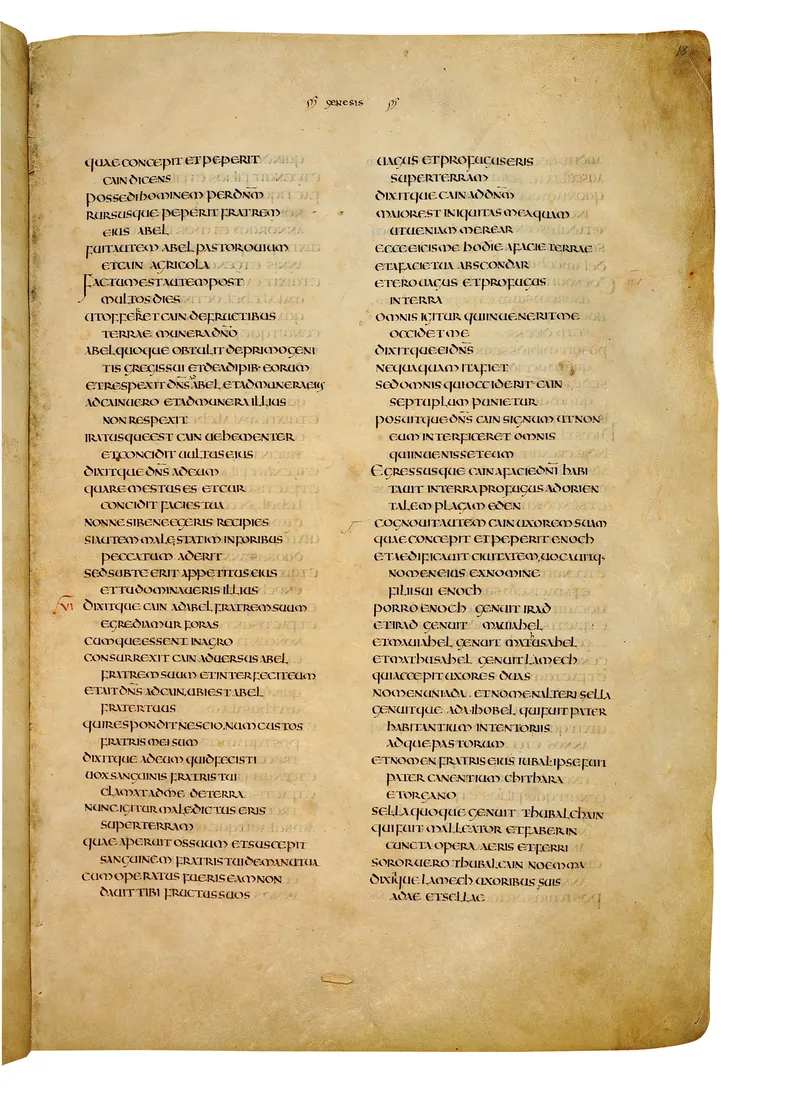 genesis
18
quae concepit et peperit
cain dicens
possedi hominem per dn̄m
rursusque peperit fratrem
eius abel
fuit autem abel pastor ouium
et cain agricola
factum est autem post
multos dies
ut offerret cain de fructibus
terrae munera dn̄o
abel quoque obtulit de primogeni
tis gregis sui et de adipib· eorum
et respexit dn̄s abel et ad munera eius
ad cain uero et ad munera illius
non respexit
iratusque est cain uehementer
et concidit uultus eius
dixitque dn̄s ad eum
quare mestus es et cur
concidit facies tua
nonne si bene egeris recipies
si autem male statim in foribus
peccatum aderit
sed sub te erit appetitus eius
et tu dominaueris illius
VI dixitque cain ad abel fratrem suum
egrediamur foras
cumque essent in agro
consurrexit cain aduersus abel
fratrem suum et interfecit eum
et ait dn̄s ad cain ubi est abel
frater tuus
qui respondit nescio num custos
fratris mei sum
dixitque ad eum quid fecisti
uox sanguinis fratris tui
clamat ad me de terra
nunc igitur maledictus eris
super terram
quae aperuit os suum et suscepit
sanguinem fratris tui de manu tua
cum operatus fueris eam non
dauit tibi fructus suos
uagus et profugus eris
super terram
dixitque cain ad dn̄m
maior est iniquitas mea quam
ut ueniam merear
ecce eicis me hodie a facie terrae
et a facie tua abscondar
et ero uagus et profugus
in terra
omnis igitur qui inuenerit me
occidet me
dixitque ei dn̄s
nequaquam ita fiet
sed omnis qui occiderit cain
septuplum punietur
posuitque dn̄s cain signum ut non
eum interficeret omnis
qui inuenisset eum
egressusque cain a facie dn̄i habi
tauit in terra profugus ad orien
talem plagam eden
cognouit autem cain uxorem suam
quae concepit et peperit enoch
et aedificauit ciuitatem uocauitq·
nomen eius ex nomine
filii sui enoch
porro enoch genuit irad
et irad genuit mauiahel
et mauiahel genuit matusahel
et mathusahel genuit lamech
qui accepit uxores duas
nomen uni ada et nomen alteri sella
genuitque ada iobel qui fuit pater
habitantium in tentoriis
adque pastorum
et nomen fratris eius iubal ipse fuit
pater canentium chithara
et organo
sella quoque genuit thubalchain
qui fuit malleator et faber in
cuncta opera aeris et ferri
soror uero thubalcain noemma
dixitque lamech uxoribus suis
adae et sellae